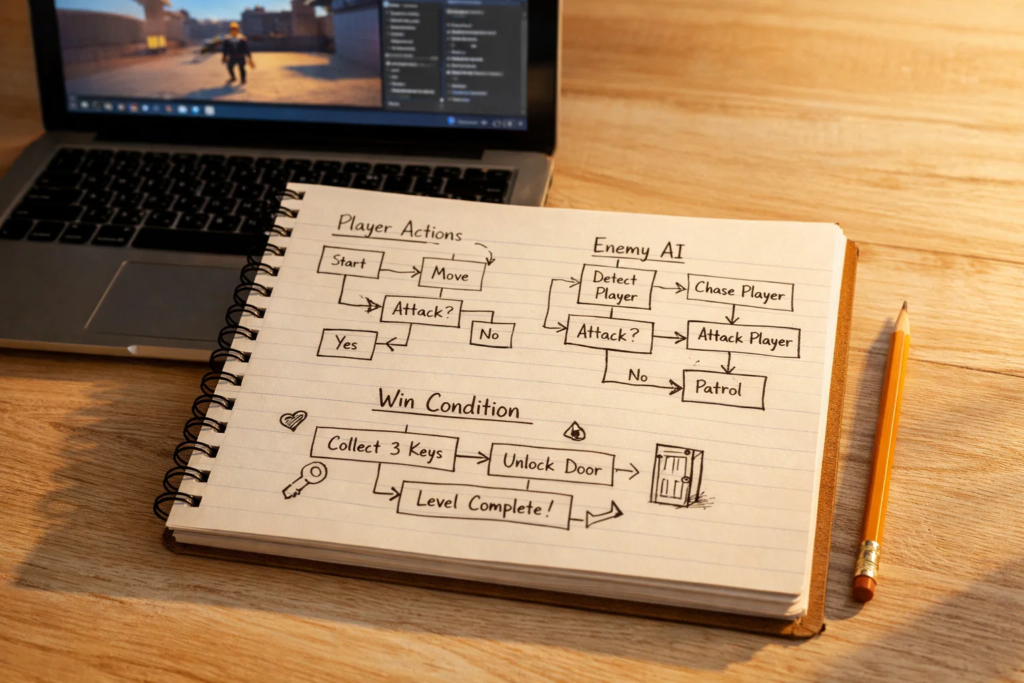 Player Actions
Start
Move
Attack?
Yes
No
Enemy AI
Detect
Player
Chase Player
Attack?
Attack Player
No
Patrol
Win Condition
Collect 3 Keys
Unlock Door
Level Complete!